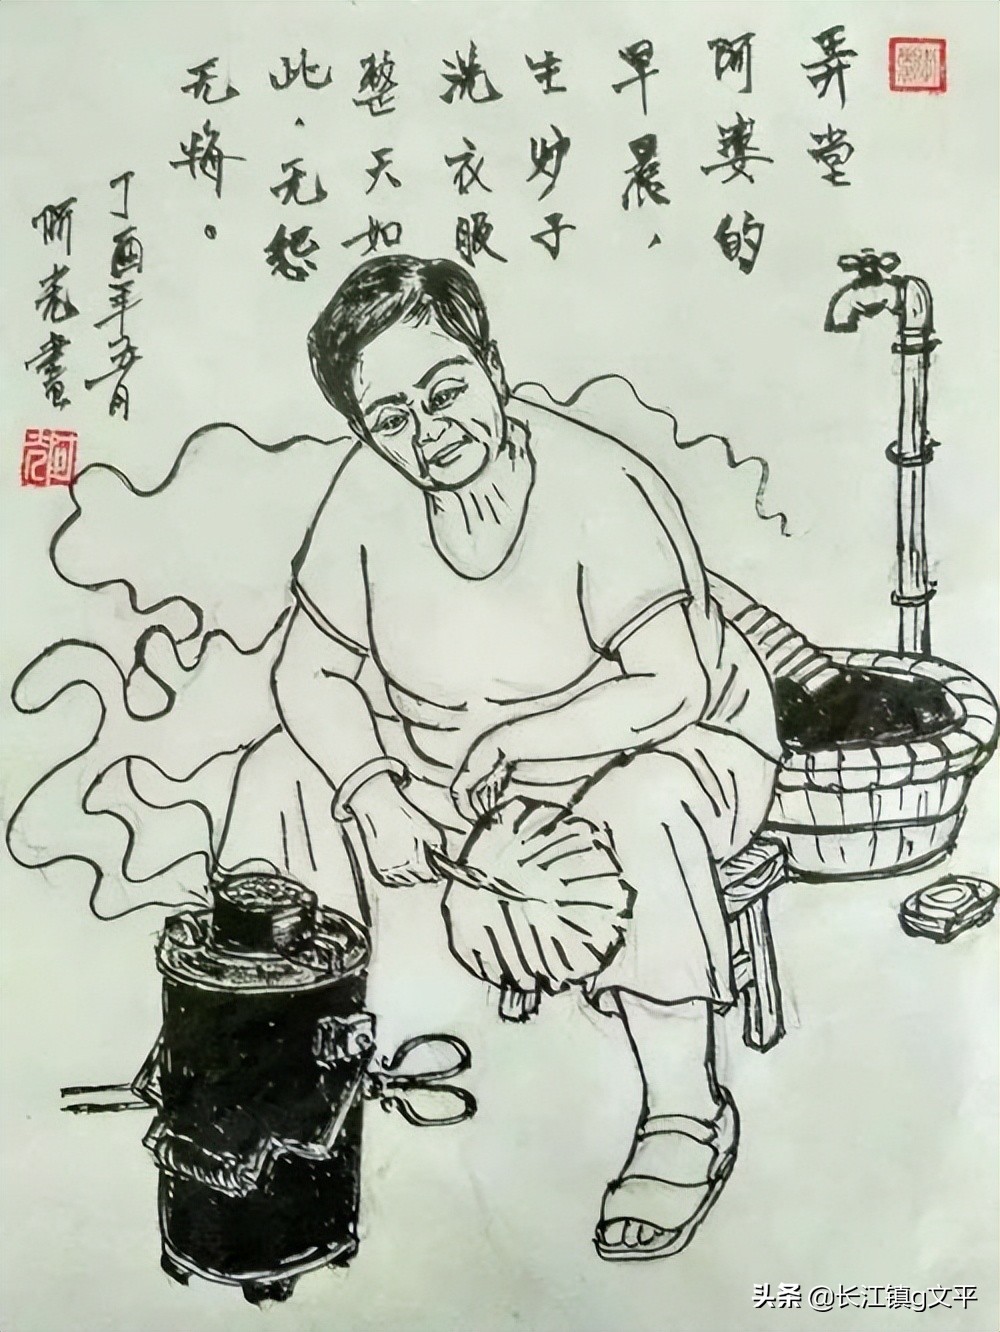 弄堂
阿婆的
早晨，
生炉子
洗衣服
整天如
此．无怨
无悔。
丁酉年五月
阿光畫
阿光
头条 @长江镇g文平